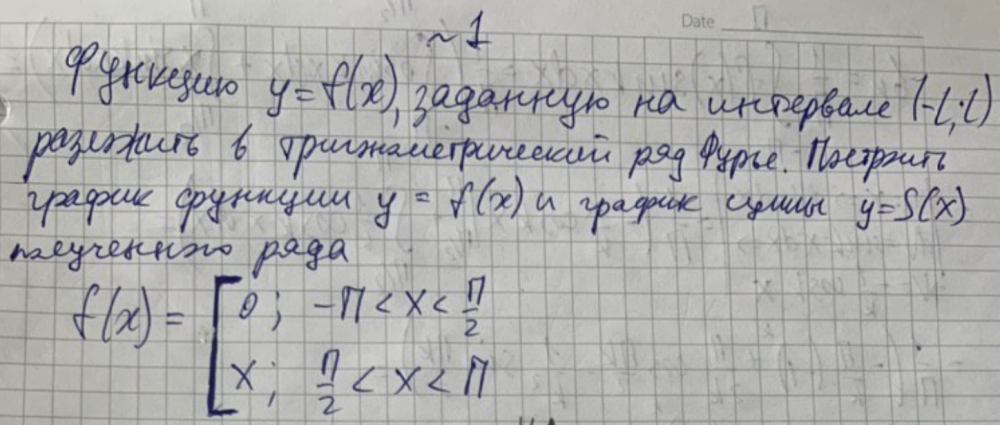 Date П
~1
Функцию y=f(x), заданную на интервале (-l; l)
разложить в тригонометрический ряд Фурье. Построить
график функции y = f(x) и график суммы y=S(x)
полученного ряда
f(x) = [ 0; -П < x < П/2
x; П/2 < x < П